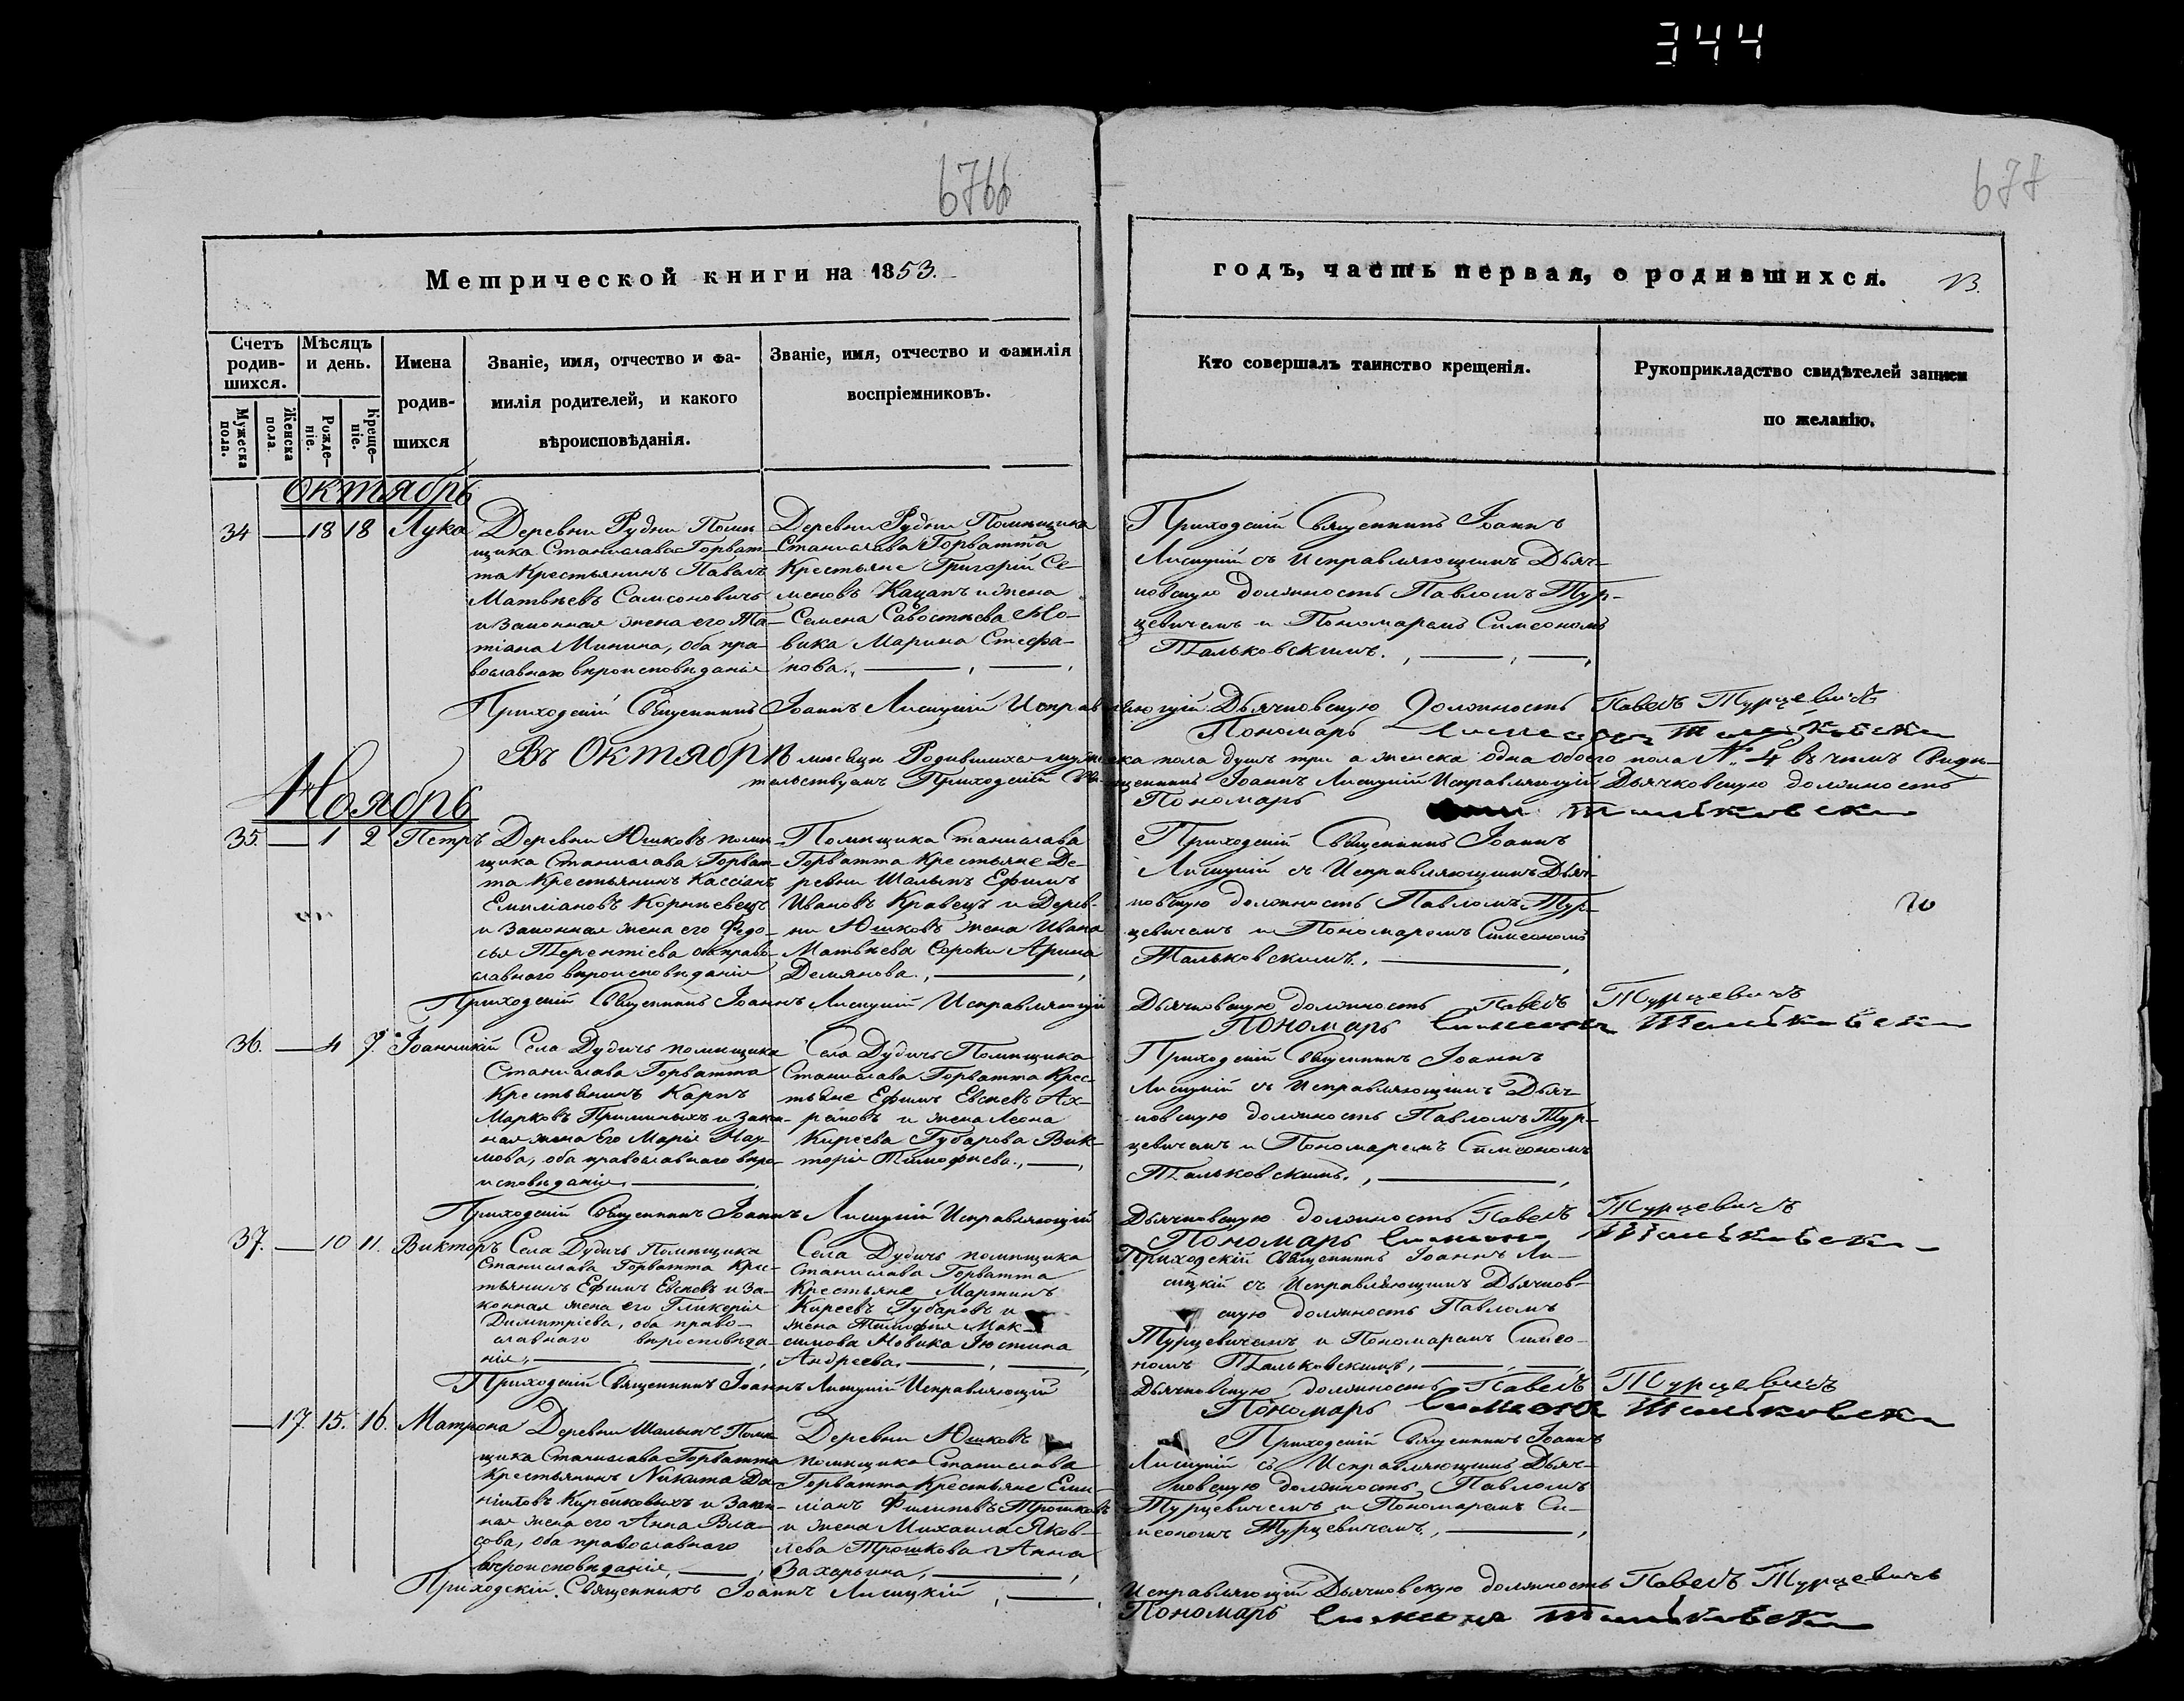 344
676б
677
Метрической книги на 1853.
годъ, часть первая, о родившихся.
Счетъ родив-шихся.
Мѣсяцъ и день.
Имена родив-шихся
Званіе, имя, отчество и фа-
милія родителей, и какого
вѣроисповѣданія.
Званіе, имя, отчество и фамилія
воспріемниковъ.
Кто совершалъ таинство крещенія.
Рукоприкладство свидѣтелей записи
по желанію.
Мужеска пола.
Женска пола.
Рожде-ніе.
Креще-ніе.
Октябрь
34 — 18 18 Лука
Деревни Рудни Помѣ-
щика Станислава Горват-
та Крестьянинъ Павелъ
Матвѣевъ Самсоновичъ
и законная жена его Та-
тіана Минина, оба пра-
вославнаго вѣроисповѣданія
Деревни Рудни Помѣщика
Станислава Горватта
Крестьяне Григорій Се-
меновъ Кацапъ и жена
Семена Савостѣева Но-
вика Марина Стефа-
нова.
Приходскій Священникъ Іоаннъ
Лисицкій съ Исправляющимъ Дьяч-
ковскую должность Павломъ Тур-
цевичемъ и Пономаремъ Симеономъ
Тальковскимъ.
Приходскій Священникъ Іоаннъ Лисицкій Исправляющій Дьячковскую Должность Павелъ Турцевичъ
Пономарь
Въ Октябрѣ мѣсяцѣ Родившихся мужеска пола душъ три а женска одна обоего пола № 4 въ чемъ Свидѣ-
тельствуемъ Приходскій Священникъ Іоаннъ Лисицкій Исправляющій Дьячковскую должность
Пономарь
Ноябрь
35. — 1 2 Петръ
Деревни Юшковъ помѣ-
щика Станислава Горват-
та Крестьянинъ Кассіанъ
Емиліановъ Корнѣевецъ
и законная жена его Федо-
сья Терентіева оба право-
славнаго вѣроисповѣданія
Помѣщика Станислава
Горватта Крестьяне Де-
ревни Шалыпъ Ефимъ
Ивановъ Кравецъ и Дерев-
ни Юшковъ жена Ивана
Матвѣева Сороки Арина
Демянова.
Приходскій Священникъ Іоаннъ
Лисицкій съ Исправляющимъ Дьяч-
ковскую должность Павломъ Тур-
цевичемъ и Пономаремъ Симеономъ
Тальковскимъ.
Приходскій Священникъ Іоаннъ Лисицкій Исправляющій Дьячковскую должность Павелъ Турцевичъ
Пономарь Симеонъ Тальковскі
36. — 4 7. Іоанникій
Села Дудичъ помѣщика
Станислава Горватта
Крестьянинъ Карпъ
Марковъ и закон-
ная жена Его Марія Нау-
мова, оба православнаго вѣро-
исповѣданія.
Села Дудичъ Помѣщика
Станислава Горватта Крес-
тьяне Ефимъ Евсѣевъ Ах-
и жена Леона
Киреева Губарова Вик-
торія Тимофѣева.
Приходскій Священникъ Іоаннъ
Лисицкій съ Исправляющимъ Дьяч-
ковскую должность Павломъ Тур-
цевичемъ и Пономаремъ Симеономъ
Тальковскимъ.
Приходскій Священникъ Іоаннъ Лисицкій Исправляющій Дьячковскую должность Павелъ Турцевичъ
Пономарь Симеонъ Тальковскі
37. — 10 11. Викторъ
Села Дудичъ Помѣщика
Станислава Горватта Крес-
тьянинъ Ефимъ Евсѣевъ и за-
конная жена его Гликерія
Димитріева, оба право-
славнаго вѣроисповѣда-
нія,
Села Дудичъ помѣщика
Станислава Горватта
Крестьяне Мартинъ
Киреевъ Губаровъ и
жена Тимофея Мак-
симова Новика Іюстина
Андреева.
Приходскій Священникъ Іоаннъ Ли-
сицкій съ Исправляющимъ Дьячков-
скую должность Павломъ
Турцевичемъ и Пономаремъ Симео-
номъ Тальковскимъ,
Приходскій Священникъ Іоаннъ Лисицкій Исправляющій Дьячковскую должность Павелъ Турцевичъ
Пономарь Симеонъ Тальковскі
— 17. 15. 16. Матрона
Деревни Шалыпъ Помѣ-
щика Станислава Горватта
Крестьянинъ Никита Да-
ніиловъ и закон-
ная жена его Анна Вла-
сова, оба православнаго
вѣроисповѣданія,
Деревни Юшковъ
помѣщика Станислава
Горватта Крестьяне Еми-
ліанъ Филиповъ Трошковъ
и жена Михаила Яков-
лева Трошкова Анна
Захарьина,
Приходскій Священникъ Іоаннъ
Лисицкій съ Исправляющимъ Дьяч-
ковскую должность Павломъ
Турцевичемъ и Пономаремъ Си-
меономъ Турцевичемъ.
Приходскій Священникъ Іоаннъ Лисицкій, Исправляющій Дьячковскую должность Павелъ Турцевичъ
Пономарь Симеонъ Тальковскі